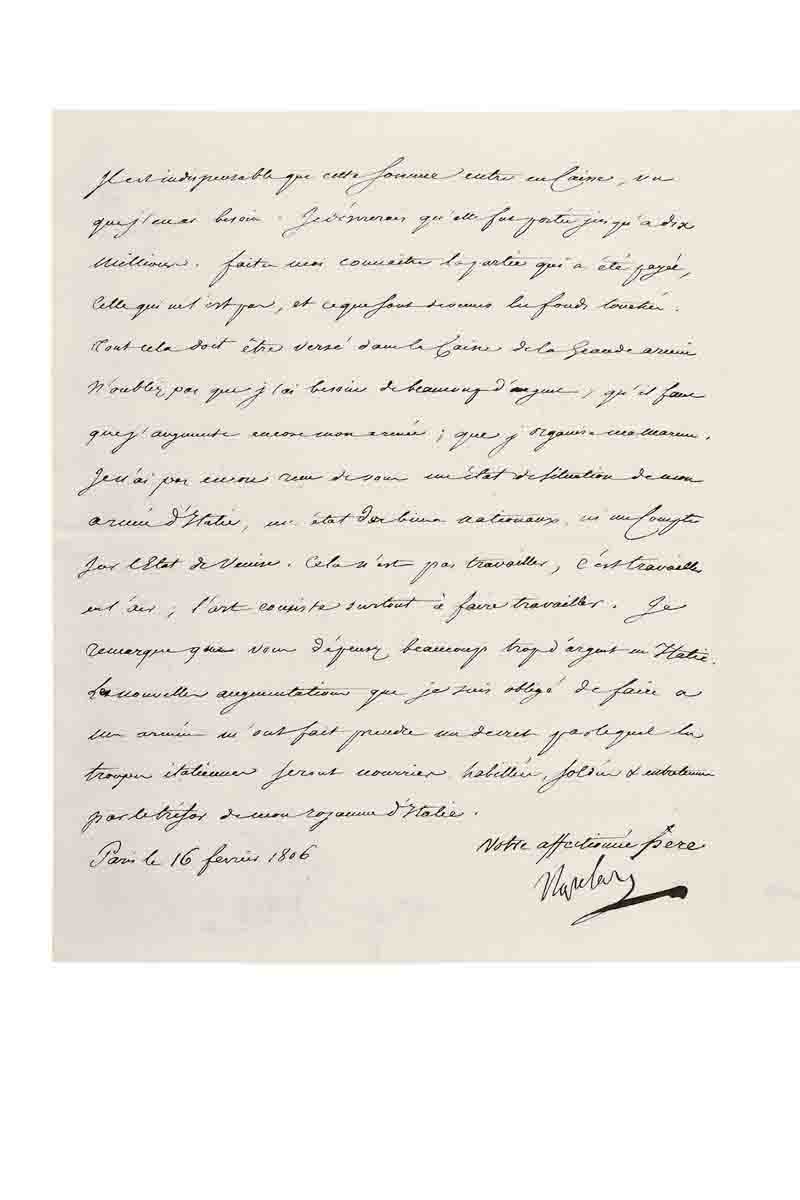 Il est indispensable que cette somme entre en Caisse, vu
que j'en ai besoin. Je désirerais qu'elle fut portée jusqu'à dix
Millions. faites moi connaitre la partie qui a été payée,
Celle qui ne l'est pas, et ce que sont devenus les fonds touchés.
Tout cela doit être versé dans la Caisse de la Grande armée
N'oubliez pas que j'ai besoin de beaucoup d'argent, qu'il faut
que j'augmente encore mon armée; que j'organise ma marine.
Je n'ai pas encore reçu de vous un état de situation de mon
armée d'Italie, ni état des biens nationaux, ni un Compte
sur l'Etat de Venise. Cela n'est pas travailler, c'est travailler
en l'air; l'art consiste surtout à faire travailler. Je
remarque que vous dépensez beaucoup trop d'argent en Italie.
Les nouvelles augmentations que je suis obligé de faire a
mes armées m'ont fait prendre un decret par lequel les
troupes italiennes seront nourries, habillées, soldées & entretenues
par le trésor de mon royaume d'Italie.
Paris le 16 fevrier 1806
Votre affectionné Père